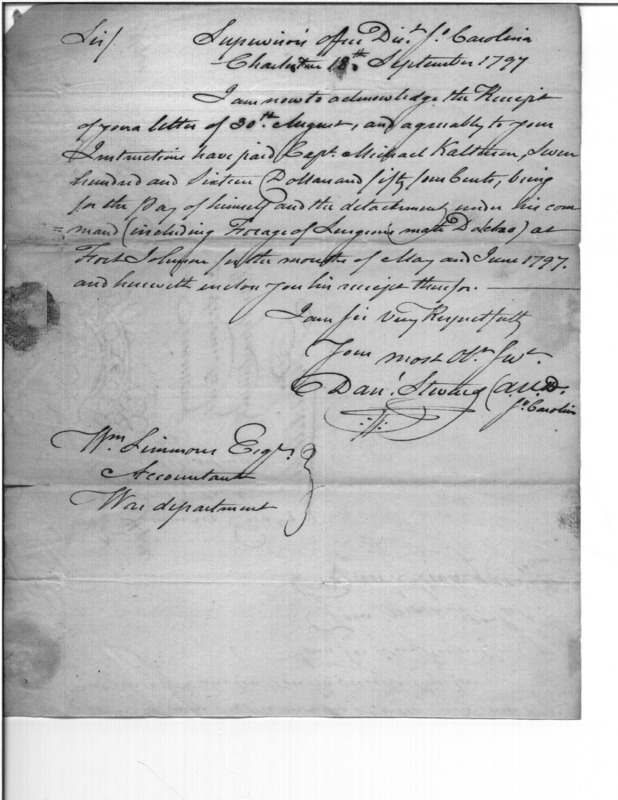 Sir/ Supervisor's office Dist. So Carolina
Charleston 18th September 1797
I am now to acknowledge the Receipt
of your letter of 30th August, and agreeably to your
Instructions have paid Capt. Michael Kalteisen, Seven
hundred and Sixteen Dollars and fifty four Cents, being
for the Pay of himself and the detachment under his com
mand (including Forage of Surgeons mate) at
Fort Johnson for the months of May and June 1797.
and herewith enclose you his receipt therefor.
I am Sir Very Respectfully
Your most Obt. Svt.
Danl. Stevens
So Carolina
Wm Simmons Esqr.
Accountant
War department